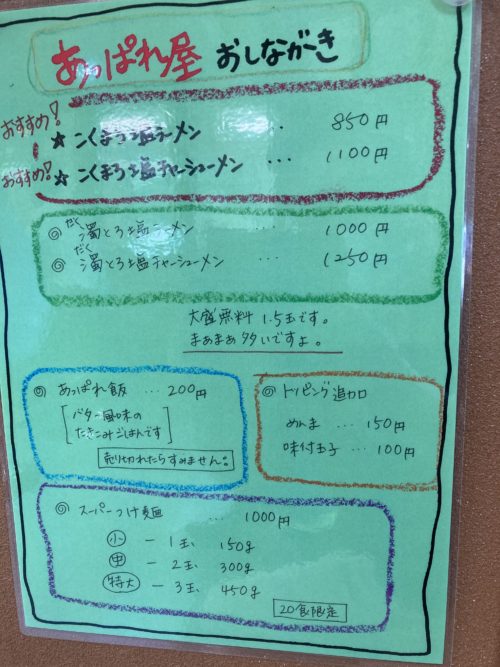 あっぱれ屋 おしながき
おすすめ! ☆ こくまろ塩ラーメン ... 850円
おすすめ! ☆ こくまろ塩チャーシューメン ... 1100円
だく
◎ 濁とろ塩ラーメン ... 1000円
だく
◎ 濁とろ塩チャーシューメン ... 1250円
大盛無料 1.5玉です。
まぁまぁ多いですよ。
◎ あっぱれ飯 ... 200円
[バター風味の
たきこみごはんです]
売り切れたらすみません。
◎ トッピング追加
めんま ... 150円
味付玉子 ... 100円
◎ スーパーつけ麺 ... 1000円
小 ー 1玉 150g
中 ー 2玉 300g
特大 ー 3玉 450g
20食限定